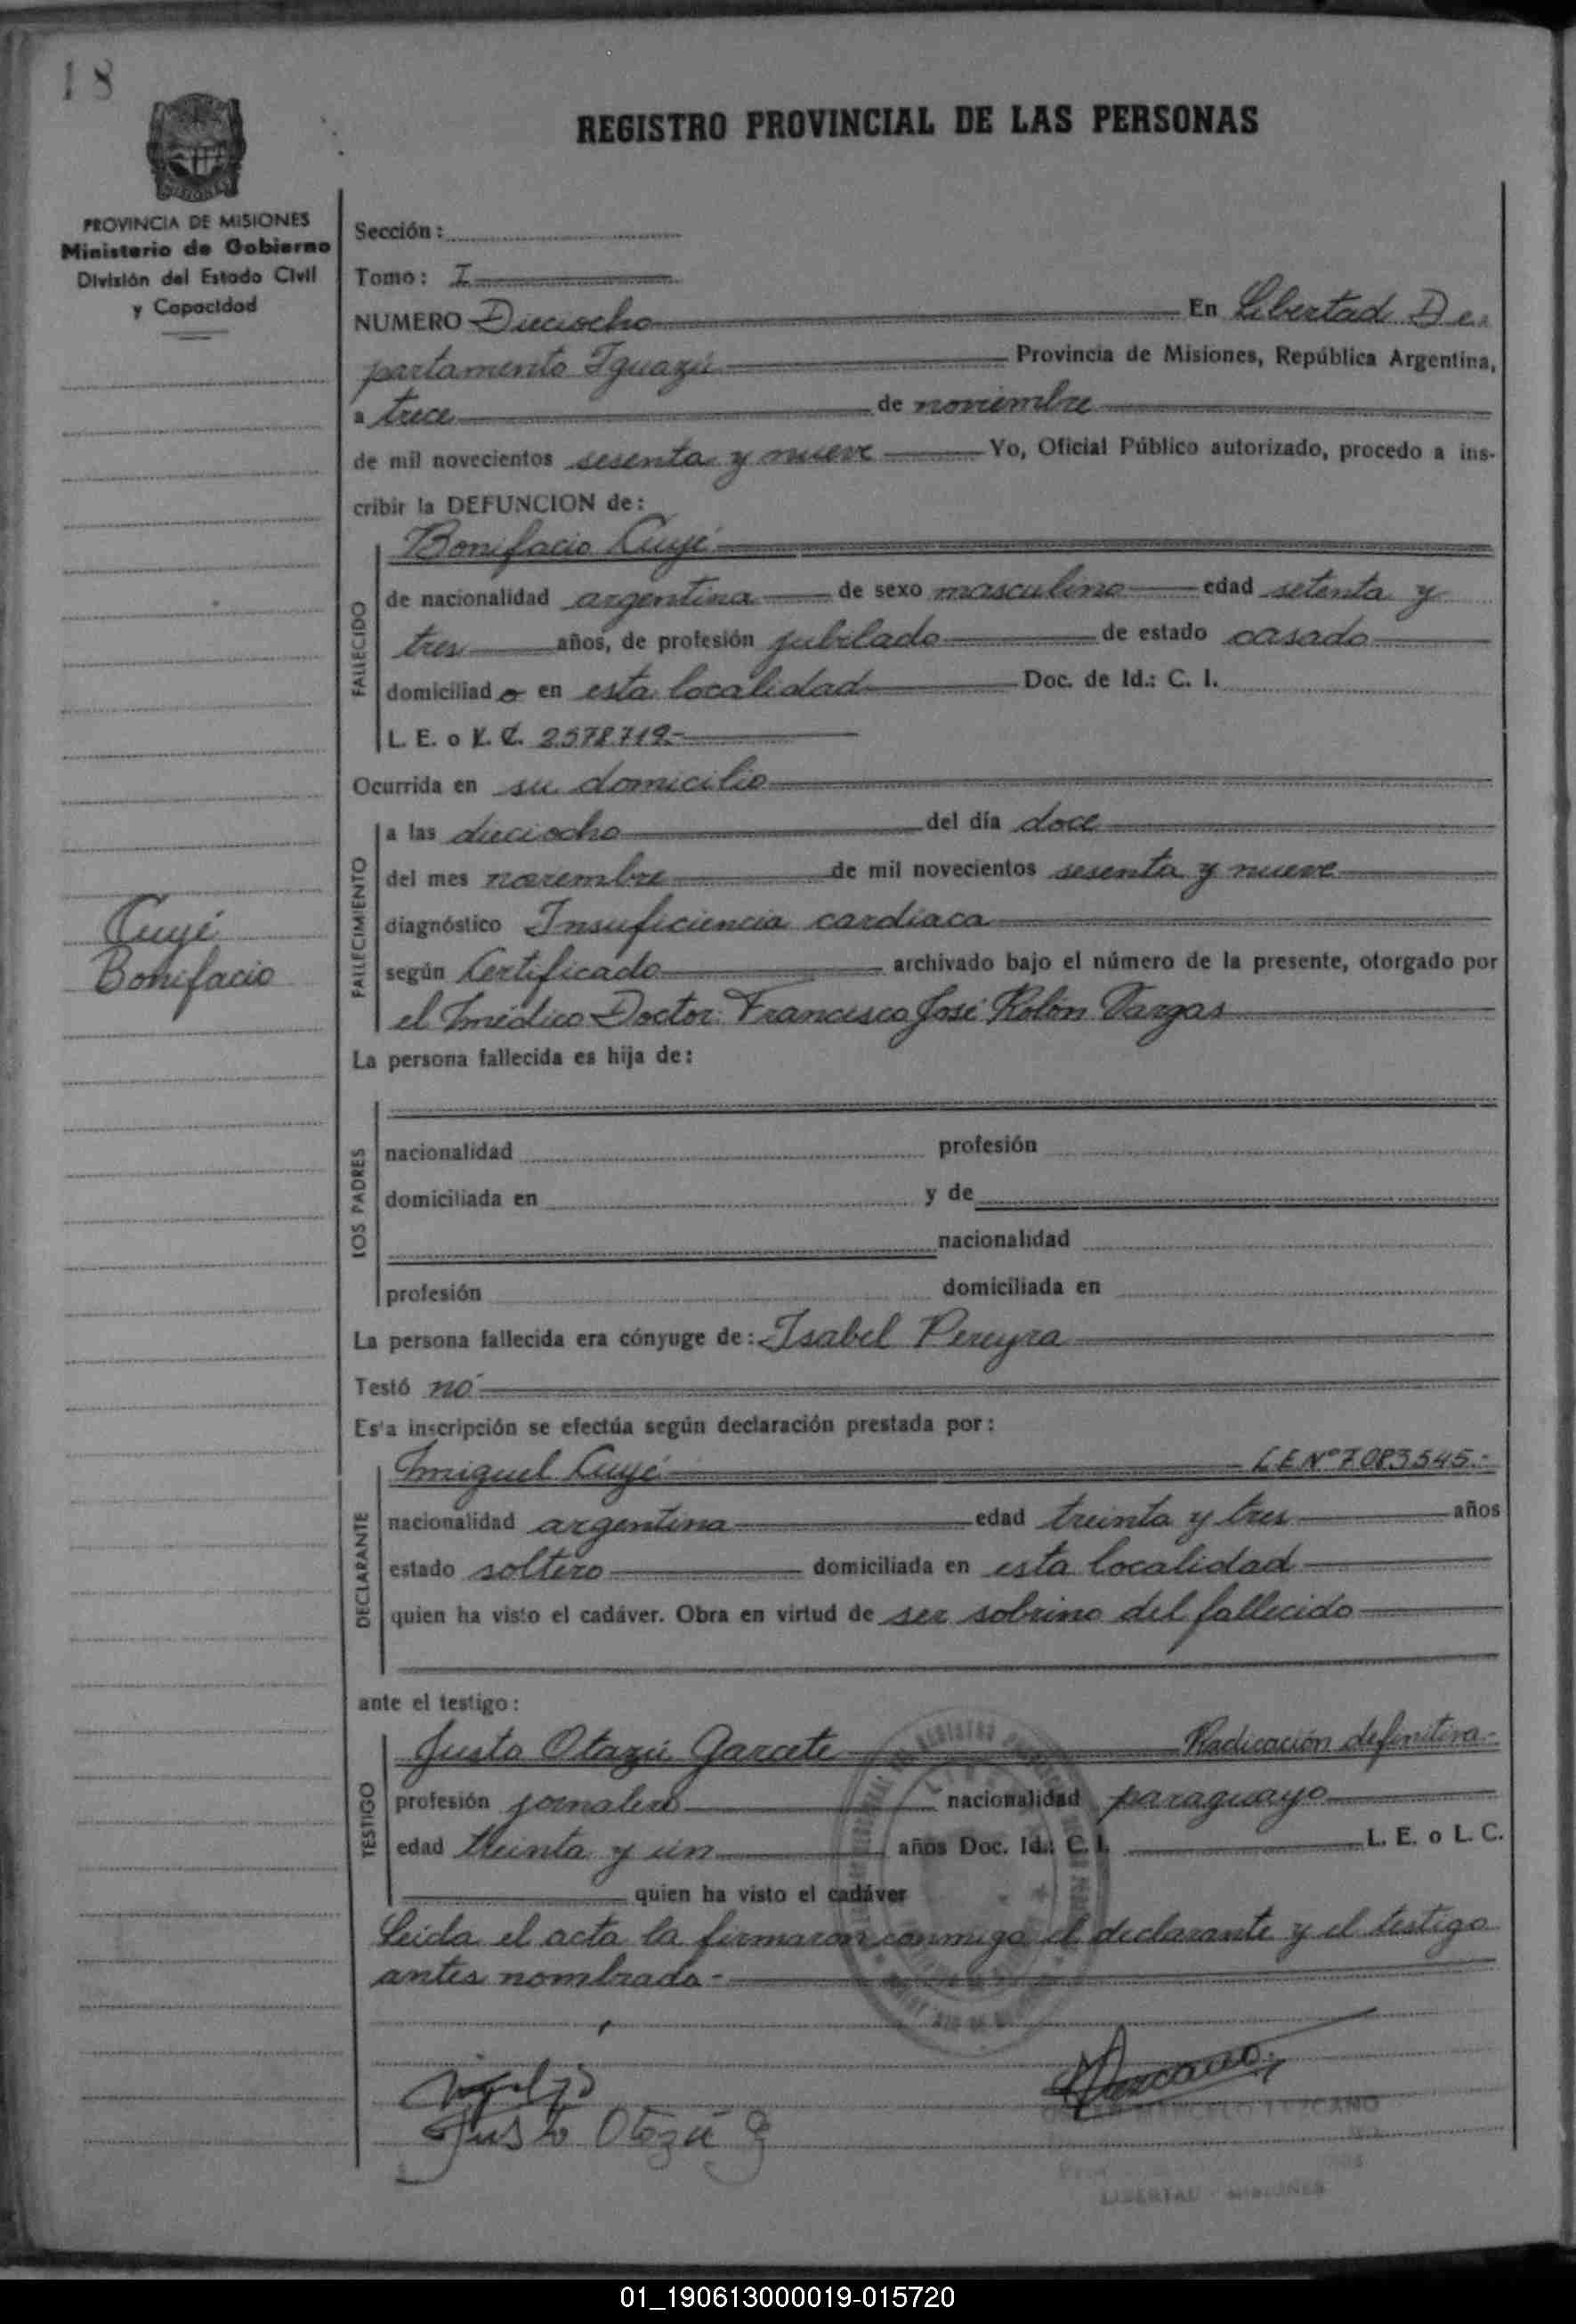 18
REGISTRO PROVINCIAL DE LAS PERSONAS
PROVINCIA DE MISIONES
Ministerio de Gobierno
División del Estado Civil
y Capacidad
Sección:
Tomo: I
NUMERO Dieciocho En Libertad De
partamento Iguazú Provincia de Misiones, República Argentina,
a trece de noviembre
de mil novecientos sesenta y nueve Yo, Oficial Público autorizado, procedo a ins-
cribir la DEFUNCION de:
Bonifacio Cuyé
FALLECIDO
de nacionalidad argentina de sexo masculino edad setenta y
tres años, de profesión jubilado de estado casado
domiciliado en esta localidad Doc. de Id.: C. I.
L. E. o L. C. 2578719.-
Ocurrida en su domicilio
FALLECIMIENTO
a las dieciocho del día doce
del mes noviembre de mil novecientos sesenta y nueve
diagnóstico Insuficiencia cardiaca
según Certificado archivado bajo el número de la presente, otorgado por
el médico Doctor: Francisco José Rolón Vargas
Cuyé
Bonifacio
La persona fallecida es hija de:
LOS PADRES
nacionalidad profesión
domiciliada en y de
nacionalidad
profesión domiciliada en
La persona fallecida era cónyuge de: Isabel Pereyra
Testó no
Esta inscripción se efectúa según declaración prestada por:
DECLARANTE
Miguel Cuyé L.E. Nº 7083545.-
nacionalidad argentina edad treinta y tres años
estado soltero domiciliada en esta localidad
quien ha visto el cadáver. Obra en virtud de ser sobrino del fallecido
ante el testigo:
TESTIGO
Justo Otazú Garcete Radicación definitiva.-
profesión jornalero nacionalidad paraguayo
edad treinta y un años Doc. Id.: C. I. L. E. o L. C.
quien ha visto el cadáver
Leída el acta la firmaron conmigo el declarante y el testigo
antes nombrado.-
Justo Otazú G
MARCELO LEZCANO
LIBERTAD - MISIONES
01_190613000019-015720